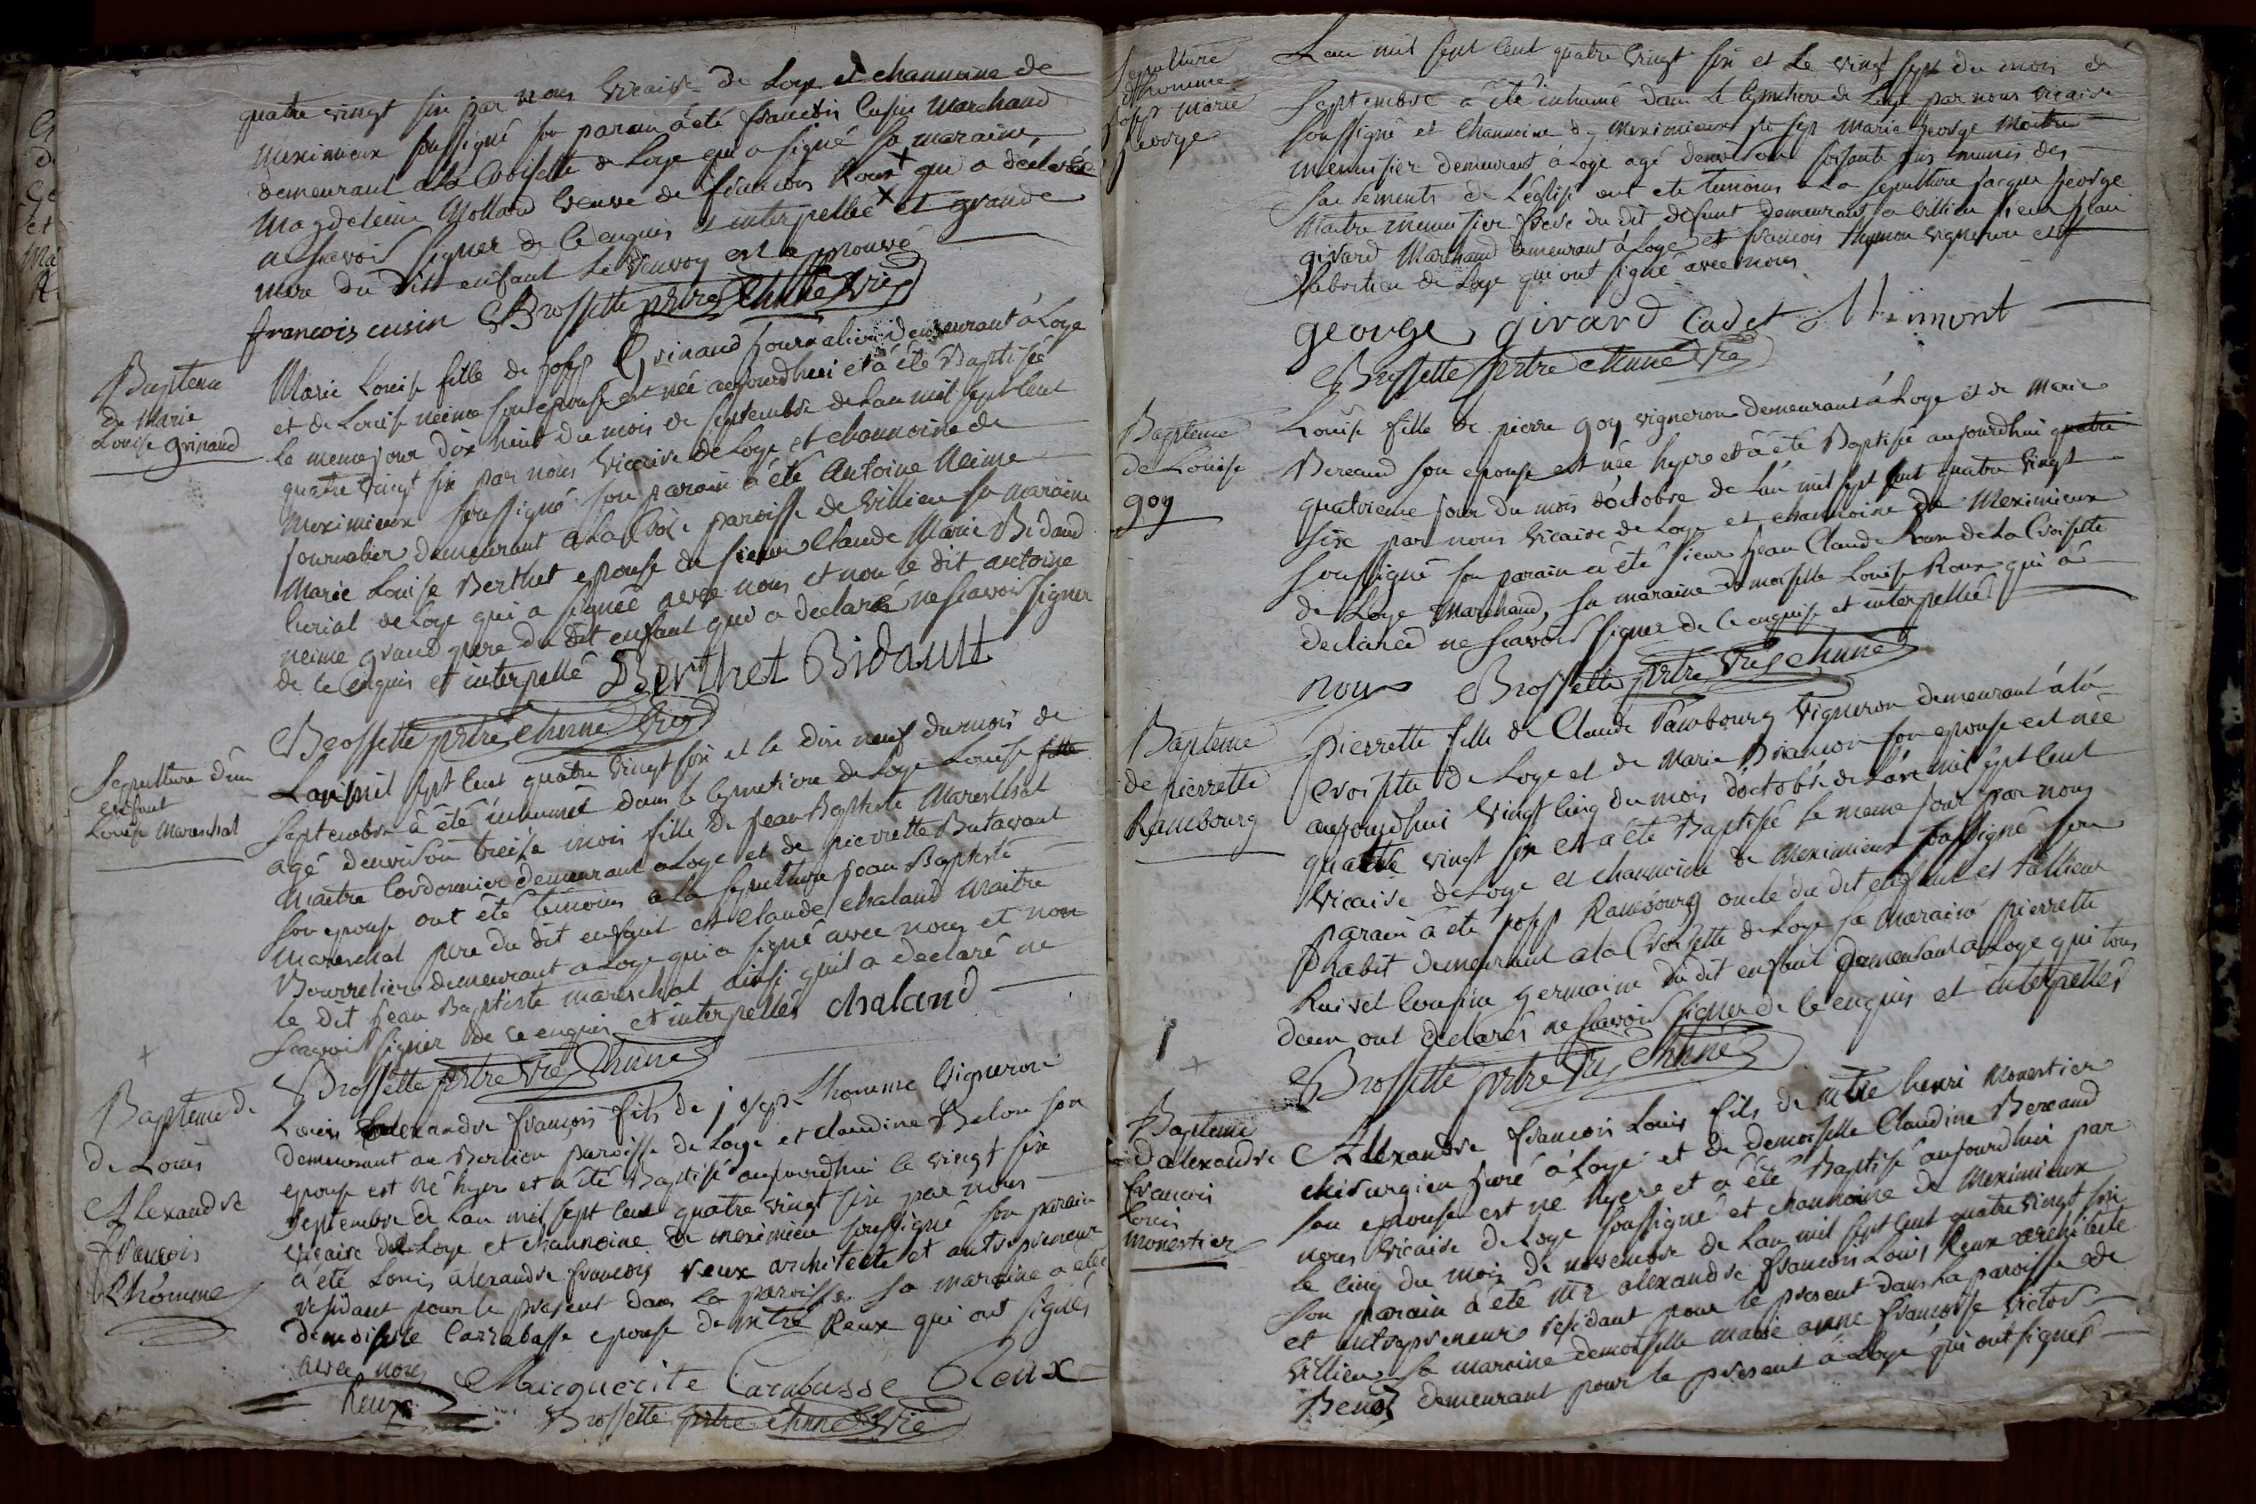 quatre vingt six par nous vicaire de Loye et chanoine de
Meximieux soussigné son parain a été francois Cusin Marchand
demeurant a la Croisette de Loye qui a signé sa maraine
Magdeleine Mollard veuve de francois Roux qui a déclarée
ne scavoir signer de ce enquis et interpellée et grande
mere du dit enfant le renvoy est aprouvé
francois cusin Brossette prtre Chnne Vre
Bapteme
de Marie
Louise Grinand
Marie Louise fille de josph Grinand journalier demeurant à Loye
et de Louise neime son epouse est née aujourdhui et a été Baptisée
le meme jour dix huit du mois de septembre de l'an mil sept cent
quatre vingt six par nous vicaire de Loye et chanoine de
Meximieux soussigné son parain a été Antoine Neime
journalier demeurant a la paroisse de Villieu sa maraine
Marie Louise Berthet epouse du sieur Claude Marie Bidaud
de Loye qui a signée avec nous et non le dit antoine
neime grand pere du dit enfant qui a declaré ne scavoir signer
de ce enquis et interpellé Berthet Bidault
Brossette prtre chnne Vre
Sepulture d'un
enfant
Louise Mareschal
L'an mil sept cent quatre vingt six et le dix neuf du mois de
septembre a été inhumé dans le cymetiere de Loye Louise fille
agé denviron treise mois fille de jean Baptiste Mareschal
Maitre Cordonnier demeurant a Loye et de pierrette Butavant
son epouse ont été temoins a la sepulture jean Baptiste
Mareschal pere du dit enfant et Claude chaland Maitre
Bourrelier demeurant a Loye qui a signé avec nous et non
le dit jean Baptiste mareschal ainsi quil a declaré ne
scavoir signer de ce enquis et interpellés chaland
Brossette prtre vre Chnne
Bapteme de
de Louis
Alexandre
francois
Lhomme
Louis alexandre françois fils de joseph Lhomme Vigneron
demeurant au paroisse de Loye et claudine Belon son
epouse est né hyer et a été Baptisé aujourdhui le vingt six
septembre de l'an mil sept cent quatre vingt six par nous
vicaire de Loye et chanoine de meximieu soussigné son parain
a été Louis alexandre francois reux architecte et antrepreneur
residant pour le present dans la paroisse sa maraine a été
demoiselle Carrabasse epouse de mtre Reux qui ont signés
avec nous Marguerite Carabasse Reux
Reux Brossette prtre chnne vre
Sepulture
d'homme
Joseph Marie
George
L'an mil sept cent quatre vingt six et le vingt sept du mois de
septembre a été inhumé dans le cymetiere de Loye par nous vicaire
soussigné et Chanoine de Meximieux joseph Marie george Maitre
menuisier demeurant à Loye agé denviron soisante ans munis des
sacrements de l'eglise ont ete temoins a La sepulture jacque george
Maitre menuisier frere du dit defunt demeurant a villieu sieur jean
girard Marchand demeurant à Loye et francois thymon vigneron et
de Loye qui ont signé avec nous
george girard Cadet
Brossette prtre chnne vre
Bapteme
de Louise
goy
Louise fille de pierre goy vigneron demeurant à Loye et de Marie
Bereaud son epouse est née hyer et a été Baptisée aujourdhui quatre
quatrieme jour du mois d'octobre de l'an mil sept cent quatre vingt
six par nous vicaire de Loye et chanoine de Meximieux
soussigné son parain a été sieur jean Claude Roux de la Croisette
de Loye Marchand, sa maraine demoiselle Louise Roux qui a
declarée ne scavoir signer de ce enquise et interpellée
roux Brossette prtre vre chnne
Bapteme
de pierrette
Rambourg
pierrette fille de Claude Rambourg Vigneron demeurant à la
Croisette de Loye et de Marie Briancon son epouse est née
aujourdhui vingt cinq du mois d'octobre de l'an mil sept cent
quatre vingt six et a été Baptisée le meme jour par nous
vicaire de Loye et chanoine de Meximieux soussigné son
parain a été joseph Rambourg oncle du dit enfant et tailleur
dhabit demeurant a la Croisette de Loye sa maraine pierrette
Ruivet Cousine germaine du dit enfant demeurant a Loye qui tous
deux ont declarés ne scavoir signer de ce enquis et interpellés
Brossette prtre vre Chnne
Bapteme
d'alexandre
francois
louis
monestier
Alexandre francois Louis fils de mtre henri Monestier
chirurgien juré à Loye et de demoiselle Claudine Bereaud
son epouse est né hyere et a été Baptisé aujourdhui par
nous vicaire de Loye soussigné et chanoine de Meximieux
le cinq du mois de novembre de l'an mil sept cent quatre vingt six
son parain a été mr alexandre francois Louis Reux architecte
et entrepreneur residant pour le present dans la paroisse de
Villieu sa maraine demoiselle marie anne francoise victor
Benoz demeurant pour le present à Loye qui ont signés